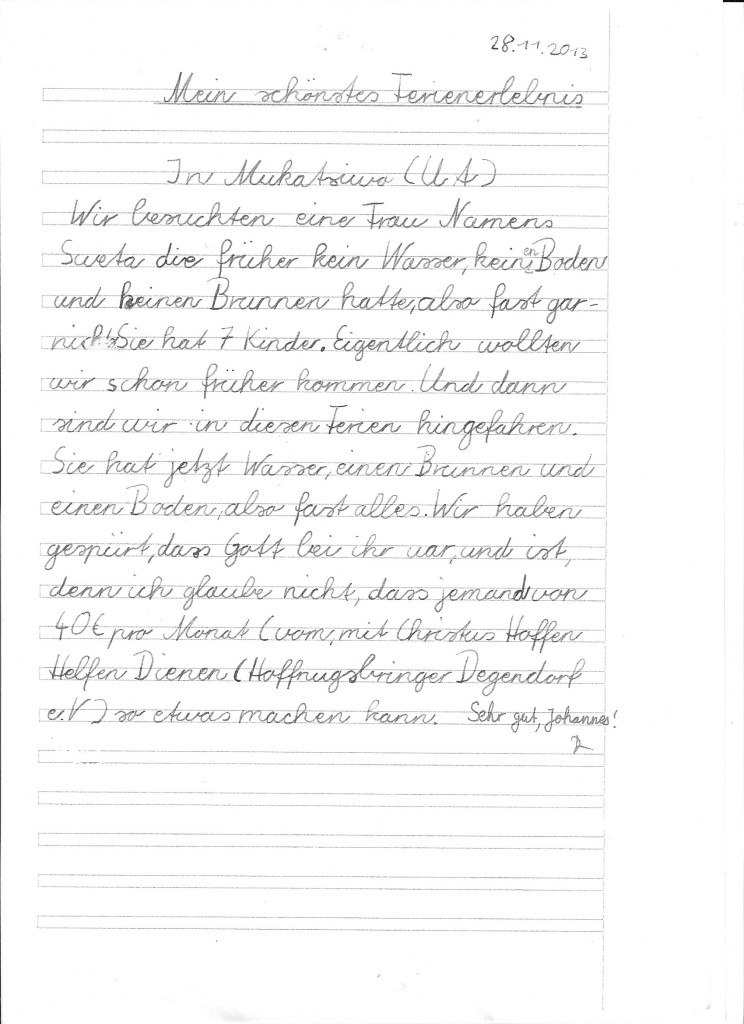 28.11.2013
Mein schönstes Ferienerlebnis
In Mukatsiwo (U.A)
Wir besuchten eine Frau Namens
Sweta die früher kein Wasser, keinen Boden
und keinen Brunnen hatte, also fast gar-
nichts. Sie hat 7 Kinder. Eigentlich wollten
wir schon früher kommen. Und dann
sind wir in diesen Ferien hingefahren.
Sie hat jetzt Wasser, einen Brunnen und
einen Boden, also fast alles. Wir haben
gespürt, dass Gott bei ihr war, und ist,
denn ich glaube nicht, dass jemand von
40€ pro Monat (vom, mit Christus Hoffen
Helfen Dienen (Hoffnugsbringer Degendorf
e.V) so etwas machen kann. Sehr gut, Johannes!